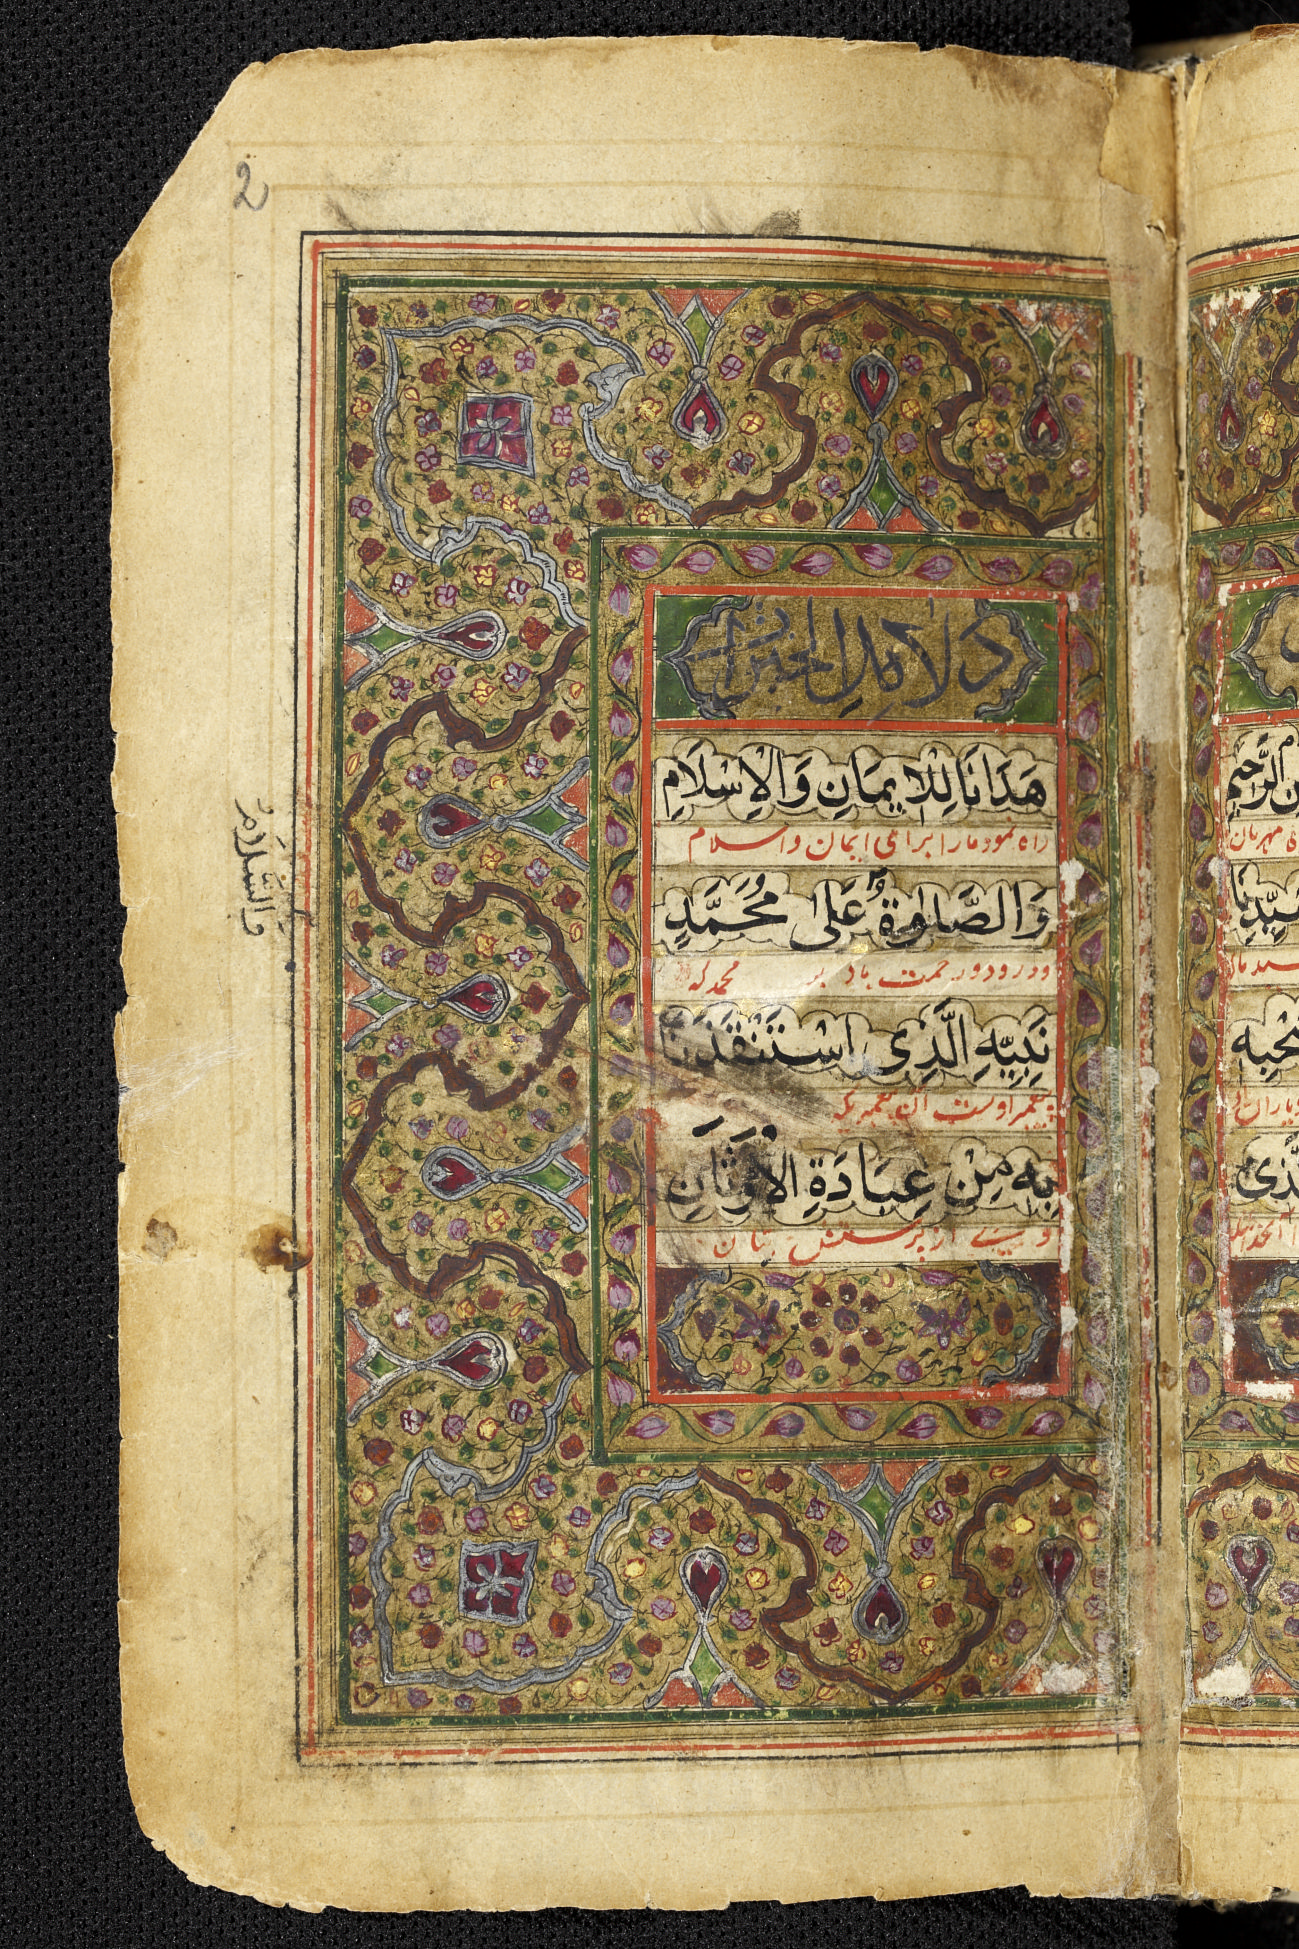 2
دلايل الخيرات
هَدَانَا لِلْاِيمَانِ وَالْاِسْلَامِ
راه نمود مارا براى ايمان واسلام
وَالصَّلٰوةُ عَلٰى مُحَمَّدٍ
ودرود ورحمت باد بر محمد كه
نَبِيِّهِ الَّذِى اسْتَنْقَذَنَا
پيغمبر اوست آن پيغمبريكه
بِهٖ مِنْ عِبَادَةِ الْاَوْثَانِ
از پرستش بتان
وَالسَّلَامُ